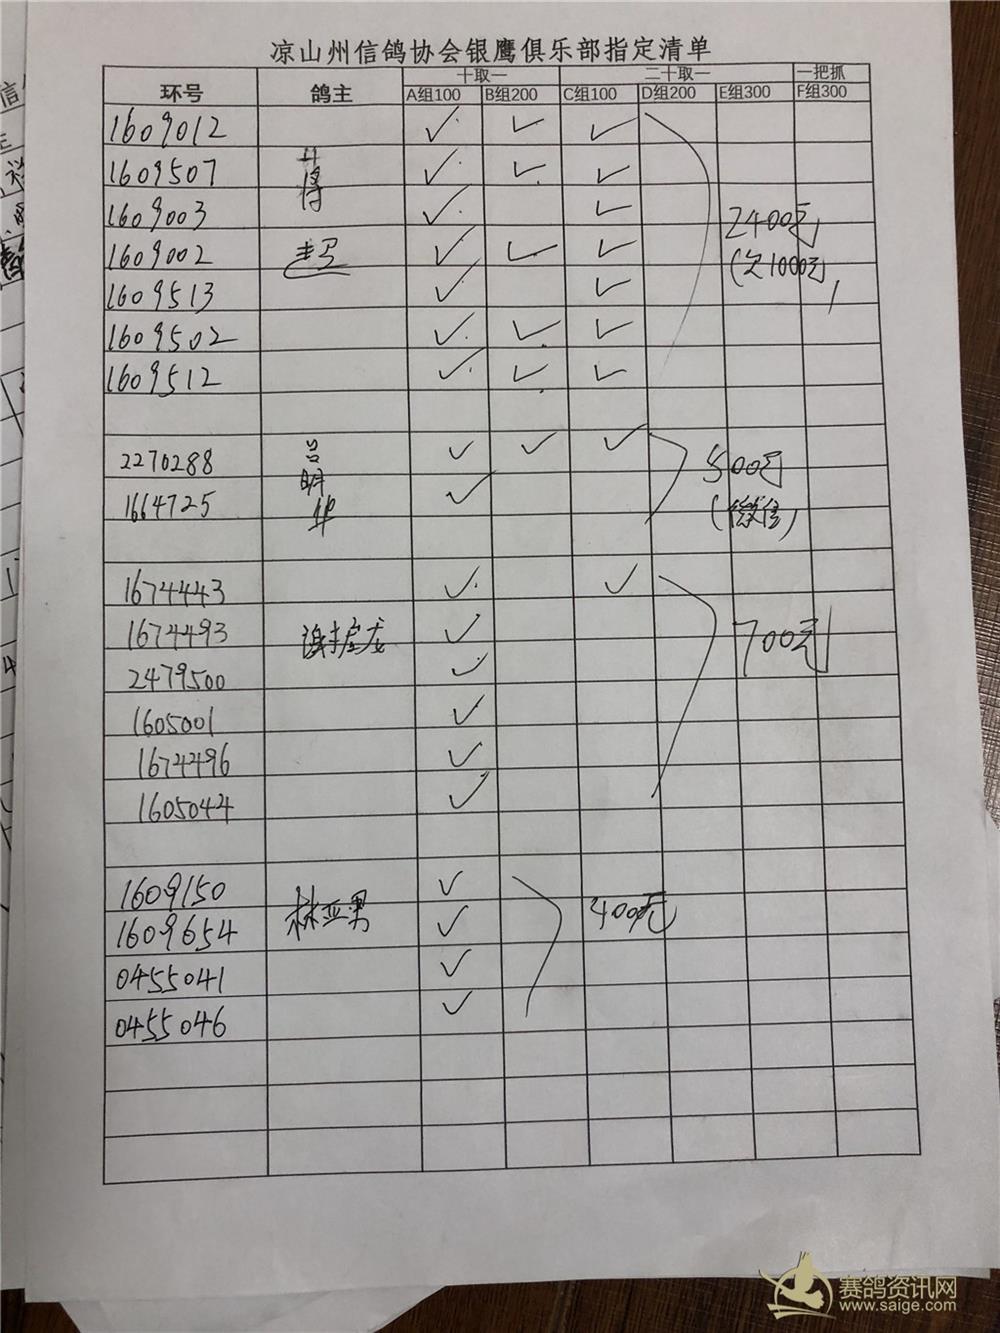 凉山州信鸽协会银鹰俱乐部指定清单
环号 鸽主 十取一 二十取一 一把抓
A组100 B组200 C组100 D组200 E组300 F组300
1609012 ✓ ✓ ✓
1609507 ✓ ✓ ✓
1609003 ✓ ✓ 2400元
1609002 ✓ ✓ ✓ (欠1000元)
1609513 ✓ ✓
1609502 ✓ ✓ ✓
1609512 ✓ ✓ ✓
2270288 吕明华 ✓ ✓ ✓ 500元
1664725 ✓ (微信)
1674443 ✓ ✓
1674493 ✓ 700元
2479500 ✓
1605001 ✓
1674496 ✓
1605044 ✓
1609150 ✓
1609654 林亚男 ✓ 400元
0455041 ✓
0455046 ✓
赛鸽资讯网
www.saige.com